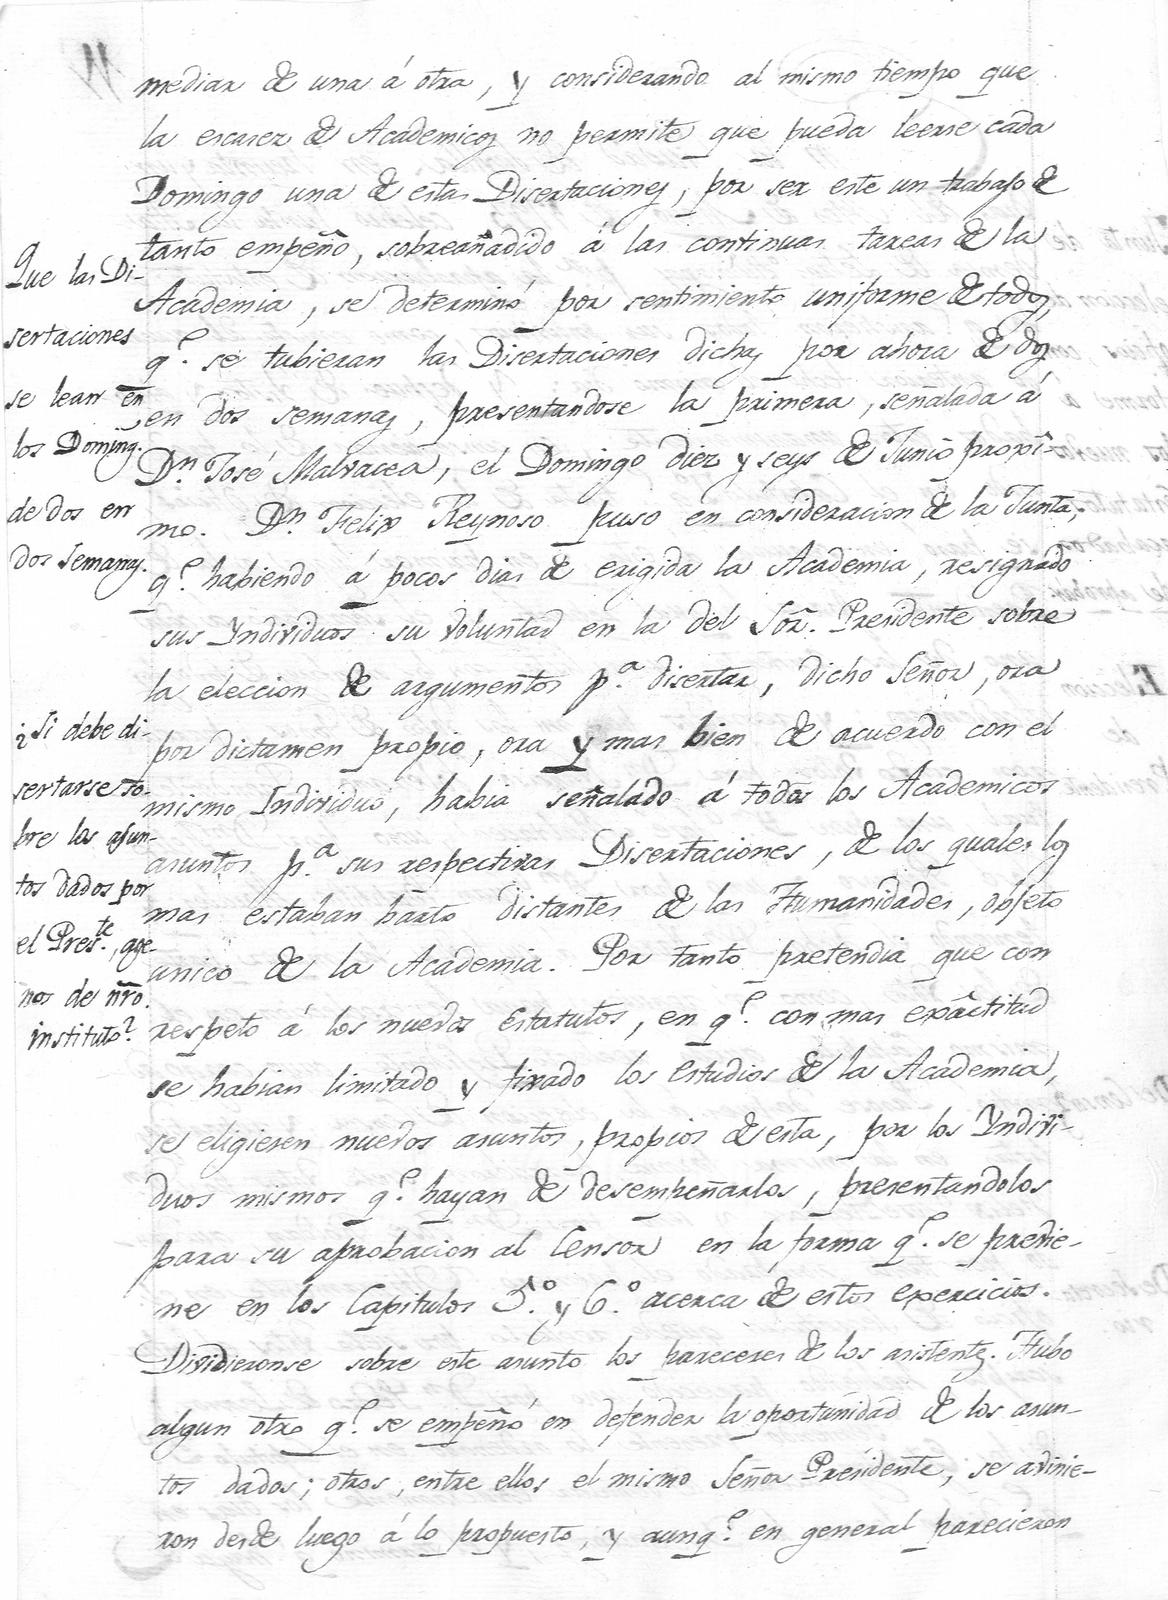 11
mediar de una á otra, y considerando al mismo tiempo que
la escasez de Academicos no permite que pueda leerse cada
Domingo una de estas Disertaciones, por ser este un trabajo de
tanto empeño, sobreañadido á las continuas tareas de la
Academia, se determinó por sentimiento uniforme de todos,
q.e se tubieran las Disertaciones dichas por ahora de dos
en dos semanas, presentandose la primera, señalada á
Dn. José Malvacea, el Domingo diez y seys de Junio proxî-
mo. Dn Felix Reynoso puso en consideracion de la Junta,
q.e habiendo á pocos dias de erigida la Academia, resignado
sus Yndividuos su voluntad en la del Sõr. Presidente sobre
la eleccion de argumentos p.a disertar, dicho Señor, ora
por dictamen propio, ora y mas bien de acuerdo con el
mismo Individuo, habia señalado á todos los Academicos
asuntos p.a sus respectivas Disertaciones, de los quales los
mas estaban harto distantes de las Humanidades, objeto
unico de la Academia. Por tanto pretendia que con
respeto á los nuevos Estatutos, en q.e con mas exâctitud
se habian limitado y fixado los Estudios de la Academia,
se eligiesen nuevos asuntos, propios de esta, por los Yndivi-
duos mismos q.e hayan de desempeñarlos, presentandolos
para su aprobacion al Censor en la forma q.e se previe-
ne en los Capitulos 5.o y 6.o acerca de estos exercicios.
Dividieronse sobre este asunto los pareceres de los asistentes. Hubo
algun otro q.e se empeñó en defender la oportunidad de los asun-
tos dados; otros, entre ellos el mismo Señor Presidente, se avinie-
ron desde luego á lo propuesto, y aunq.e en general parecieron
Que las Di-
sertaciones
se lean en
los Doming.
de dos en
dos semanas.
¿Si debe di-
sertarse so-
bre los asun-
tos dados por
el Pres.te, age-
nos de ñro.
instituto?